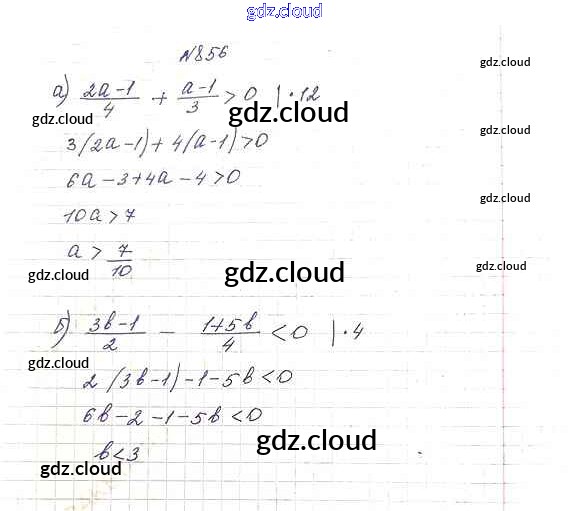 gdz.cloud
№856
gdz.cloud
а) (2a-1)/4 + (a-1)/3 > 0 | · 12
gdz.cloud
gdz.cloud
gdz.cloud
gdz.cloud
3(2a-1) + 4(a-1) > 0
6a - 3 + 4a - 4 > 0
gdz.cloud
10a > 7
a > 7/10
gdz.cloud
gdz.cloud
gdz.cloud
б) (3b-1)/2 - (1+5b)/4 < 0 | · 4
gdz.cloud
gdz.cloud
2(3b-1) - 1 - 5b < 0
gdz.cloud
6b - 2 - 1 - 5b < 0
gdz.cloud
b < 3
gdz.cloud